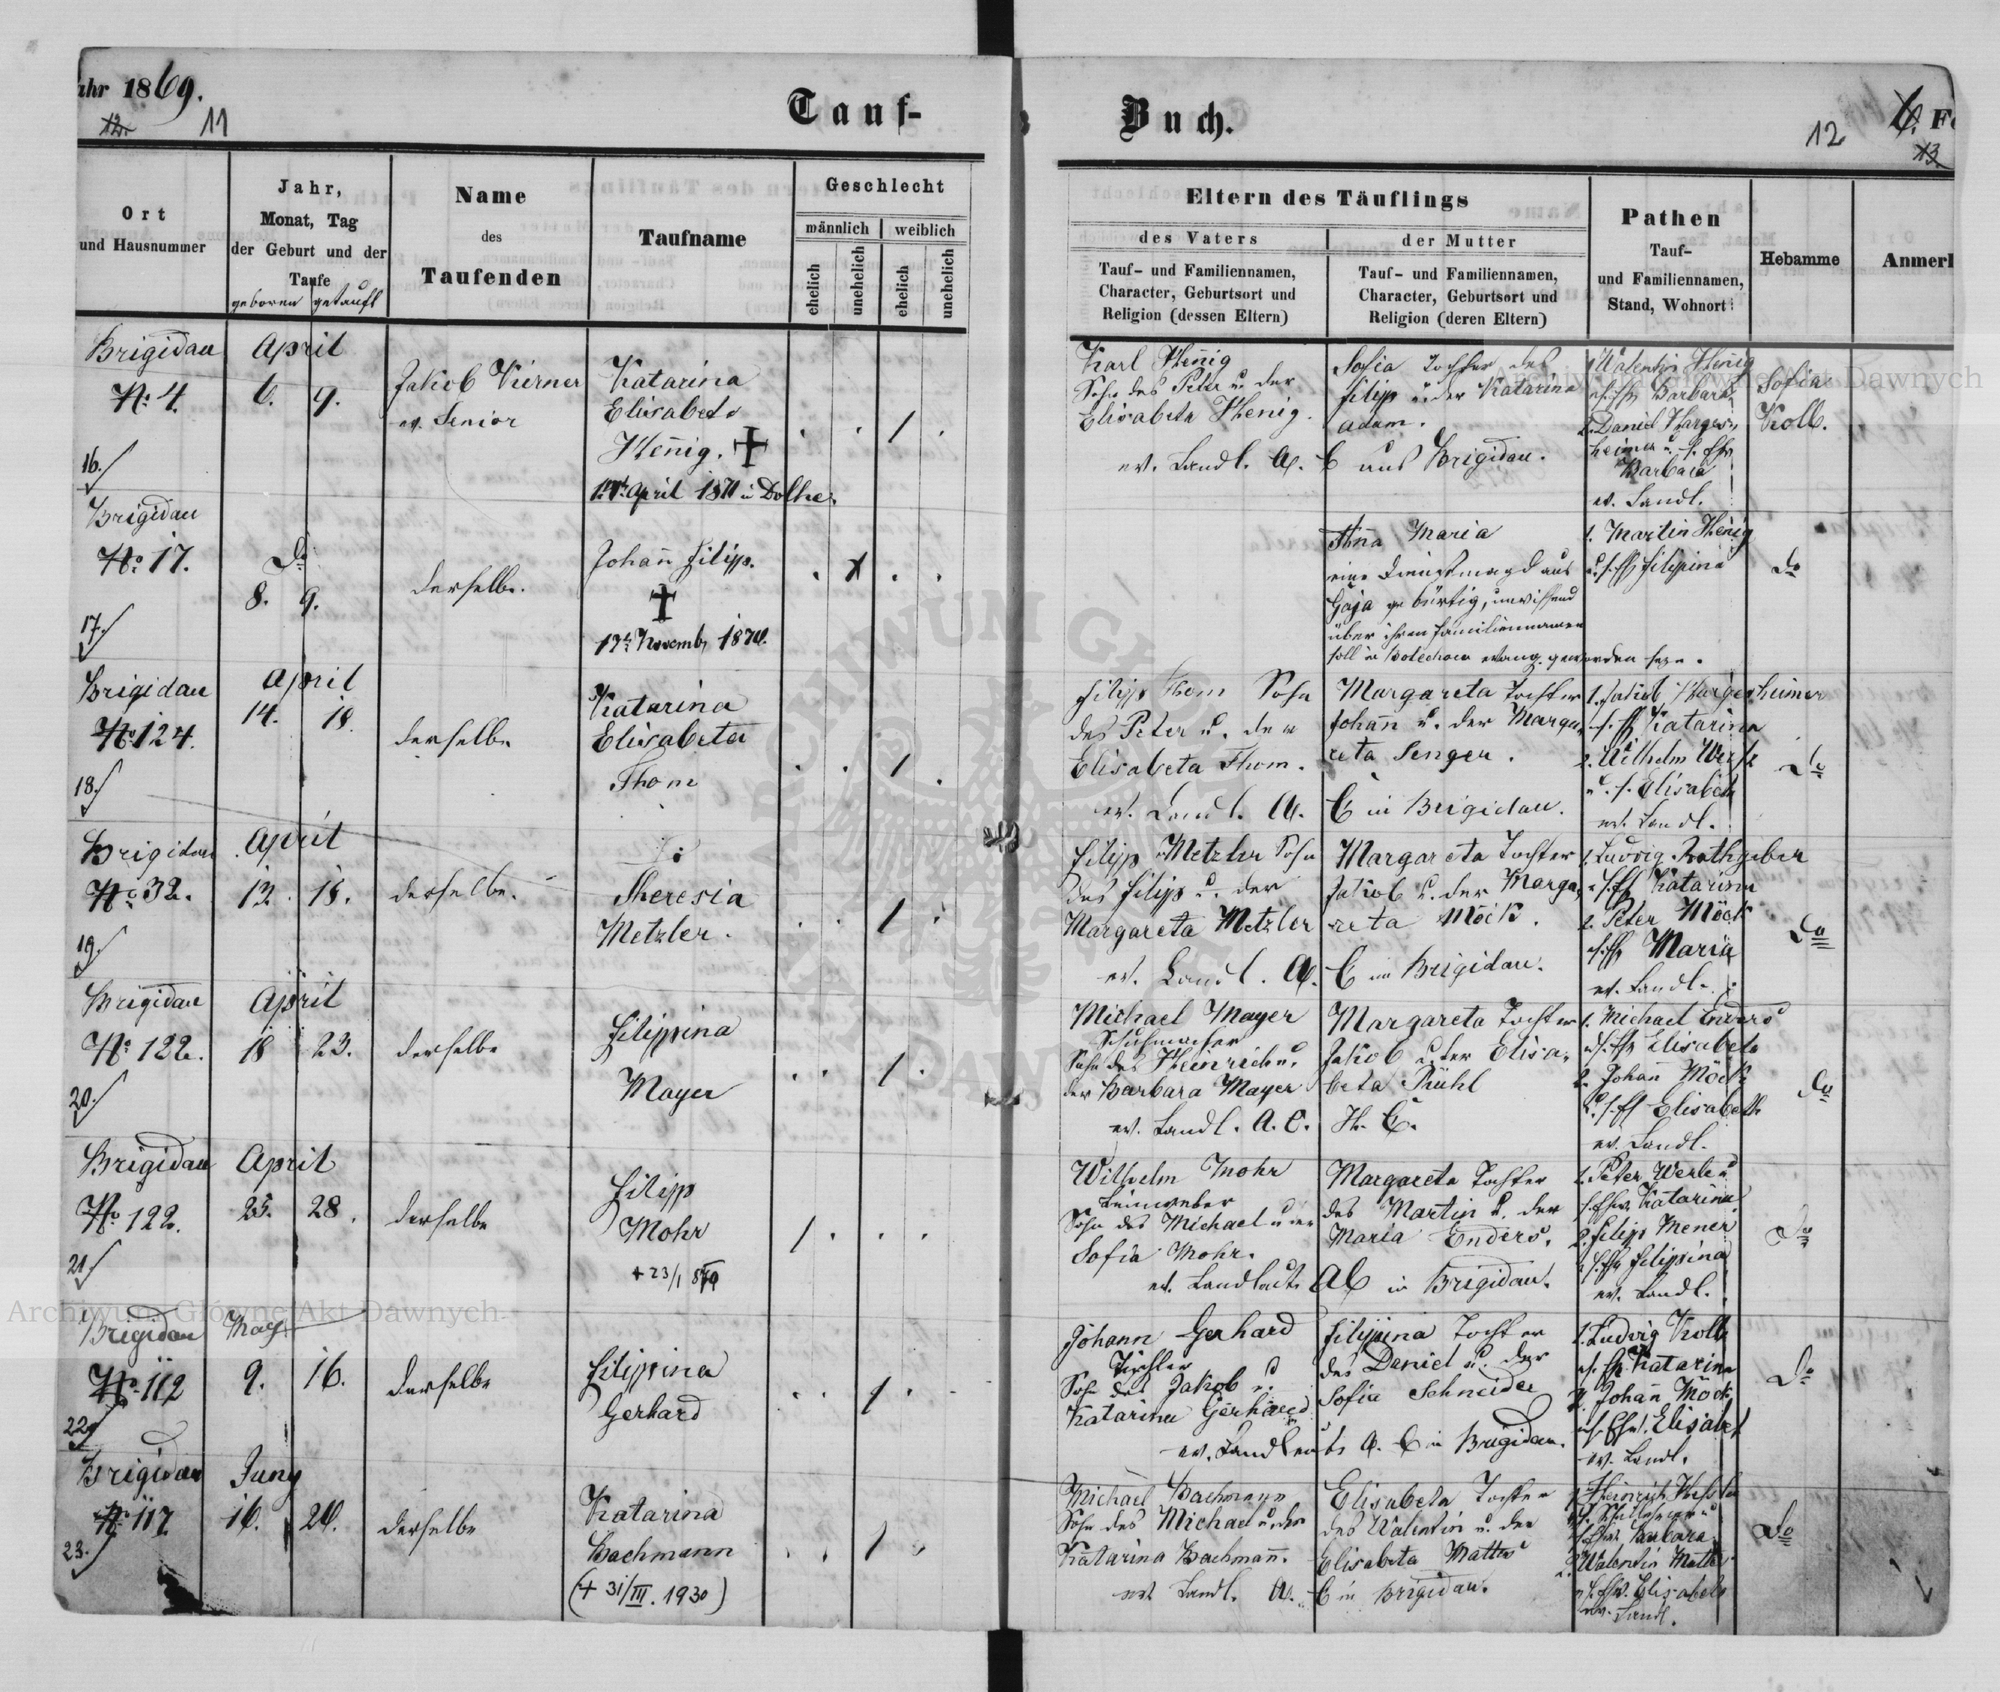 ahr 1869.
12. 11
Tauf-
Buch.
12 6. Fo
13.
Ort
und Hausnummer
Jahr,
Monat, Tag
der Geburt und der
Taufe
geboren getauft
Name
des
Taufenden
Taufname
Geschlecht
männlich weiblich
ehelich unehelich ehelich unehelich
Eltern des Täuflings
des Vaters
Tauf- und Familiennamen,
Character, Geburtsort und
Religion (dessen Eltern)
der Mutter
Tauf- und Familiennamen,
Character, Geburtsort und
Religion (deren Eltern)
Pathen
Tauf-
und Familiennamen,
Stand, Wohnort
Hebamme
Anmerk
Brigidau
No 4.
16.
April
6. 9.
Jakob Kierner
ev. Senior
Katarina
Elisabeta
Henig.
April 18 in Dolhe
Karl Henig
Sohn des Peter u. der
Elisabeta Henig.
ev. Landl. A. C aus Brigidau.
Sofia Tochter des
Filipp u. der Katarina
Adam.
1. Valentin Henig
Barbara
2. Daniel Harges-
heimer u. s. Ehfr
Barbara
ev. Landl.
Sofia
Kolb.
Brigidau
No 17.
17.
Do
8. 9.
derselbe.
Johann Filipp.
Novemb. 1870.
Anna Maria
eine Dienstmagd aus
Gaja gebürtig, unwissend
über ihren Familiennamen
soll in Bolechow evang. geworden seyn.
1. Martin Henig
u. s. Ehfr Filippina
Do
Brigidau
No 124.
18.
April
14. 18.
derselbe
Katarina
Elisabeta
Thom
Filipp Thom Sohn
des Peter u. der
Elisabeta Thom.
ev. Landl. A. C in Brigidau.
Margareta Tochter
Johann u. der Marga-
reta Senger.
1. Hargesheimer
Katarina
2. Wilhelm
u. s. Elisabeta
ev. Landl.
Do
Brigidau
No 32.
19.
April
12. 18.
derselbe.
Theresia
Metzler.
Filipp Metzler Sohn
des Filipp u. der
Margareta Metzler
ev. Landl. A. C in Brigidau.
Margareta Tochter
Jakob u. der Marga-
reta Möck.
1. Ludwig Rothgeber
Katarina
2. Peter Möck
Maria
ev. Landl.
Do
Brigidau
No 122.
20.
April
18 23.
derselbe
Filippina
Mayer
Michael Mayer
Schuhmacher
Sohn des Heinrich u.
der Barbara Mayer
ev. Landl. A. C. H. C.
Margareta Tochter
Jakob u. der Elisa-
beta Rühl
1. Michael Enders
Elisabeta
2. Johann Möck
Elisabeth
ev. Landl.
Do
Brigidau
No 122.
21.
April
25. 28.
derselbe
Filipp
Mohr
+ 23/1
Wilhelm Mohr
Leinweber
Sohn des Michael u. der
Sofia Mohr.
ev. Landleute AC in Brigidau.
Margareta Tochter
des Martin u. der
Maria Enders.
1. Peter Werle u.
Katarina
2. Filipp
Filippina
ev. Landl.
Do
Brigidau
No 112
22.
May
9. 16.
derselbe
Filippina
Gerhard
Johann Gerhard
Tischler
Sohn des Jakob u.
Katarina Gerhard
ev. Landleute A. C in Brigidau.
Filippina Tochter
des Daniel u. der
Sofia Schneider
1. Ludwig Kolb
Katarina
2. Johann Möck
Elisabet
ev. Landl.
Do
Brigidau
No 117
23.
Juny
16. 20.
derselbe
Katarina
Bachmann
(+ 31/III. 1930)
Michael Bachmann
Sohn des Michael u. der
Katarina Bachmann.
ev. Landl. A. C in Brigidau.
Elisabeta Tochter
des Valentin u. der
Elisabeta Mattes
1. Heinrich
Barbara
2. Valentin Mattes
Elisabeta
ev. Landl.
Do
Archiwum Główne Akt Dawnych
Archiwum Główne Akt Dawnych